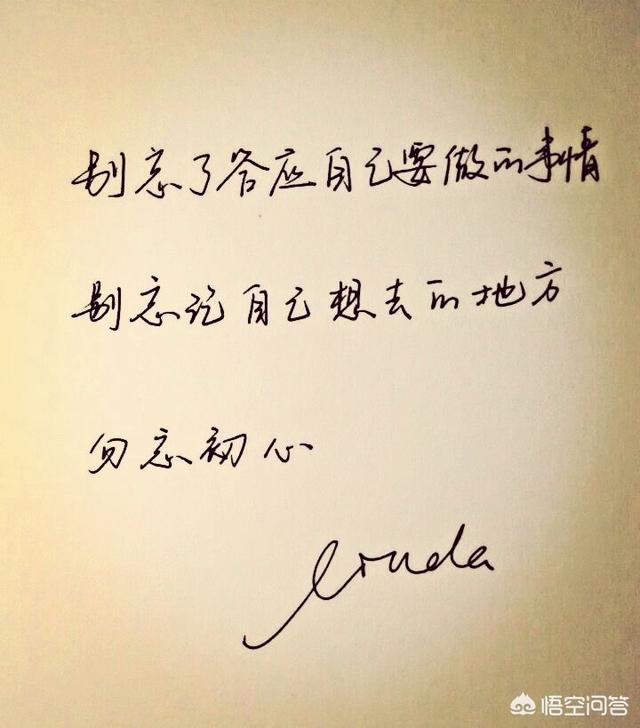 别忘了答应自己要做的事情
别忘记自己想去的地方
勿忘初心
悟空问答